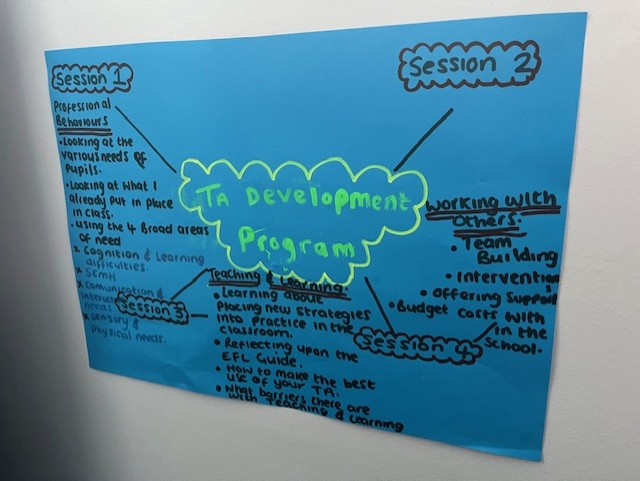 Session 1
Professional
Behaviours
• Looking at the
various needs of
Pupils.
• Looking at what I
already put in place
in class.
• Using the 4 Broad areas
of need
x Cognition & Learning
difficulties.
x SEMH
x Comunication &
needs
x Sensory &
Physical needs.
Session 2
TA Development
Program
Session 3
Teaching & Learning
• Learning about
Placing new strategies
into Practice in the
classroom.
• Reflecting upon the
EFL Guide.
• How to make the best
use of your TA.
• What barriers there are
with Teaching & Learning
Working with
Others.
• Team
Building
• Intervention
• Offering Support
• Budget costs with
in the
School.
Session 4